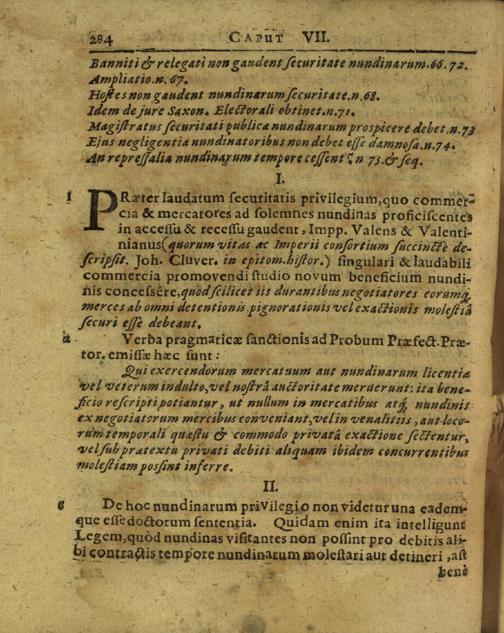 284 CAPUT VII.
Banniti & relegati non gaudent securitate nundinarum. 66. 72.
Ampliatio. n. 67.
Hostes non gaudent nundinarum securitate. n. 68.
Idem de jure Saxon. Electorali obtinet. n. 71.
Magistratus securitati publicæ nundinarum prospicere debet. n. 73
Ejus negligentia nundinatoribus non debet esse damnosa. n. 74.
An repressalia nundinarum tempore cessent? n 75. & seq.
I.
1 PRæter laudatum securitatis privilegium, quo commer-
cia & mercatores ad solemnes nundinas proficiscentes
in accessu & recessu gaudent, Impp. Valens & Valenti-
nianus (quorum vitas ac Imperii consortium succinctè de-
scripsit. Joh. Cluver. in epitom. histor.) singulari & laudabili
commercia promovendi studio novum beneficium nundi-
nis concessêre, quod scilicet iis durantibus negotiatores eorumq;
merces ab omni detentionis, pignorationis vel exactionis molestiâ
securi esse debeant.
2 Verba pragmaticæ sanctionis ad Probum Præfect. Præ-
tor. emissæ hæc sunt:
Qui exercendorum mercatuum aut nundinarum licentiâ
vel veterum indulto, vel nostrâ auctoritate meruerunt: ita bene-
ficio rescripti potiantur, ut nullum in mercatibus atq; nundinis
ex negotiatorum mercibus conveniant, vel in venalitiis, aut loco-
rum temporali quæstu & commodo privatâ exactione sectentur,
vel sub prætextu privati debiti aliquam ibidem concurrentibus
molestiam possint inferre.
II.
6 De hoc nundinarum privilegio non videtur una eadem-
que esse doctorum sententia. Quidam enim ita intelligunt
Legem, quòd nundinas visitantes non possint pro debitis ali-
bi contractis tempore nundinarum molestari aut detineri, ast
benè